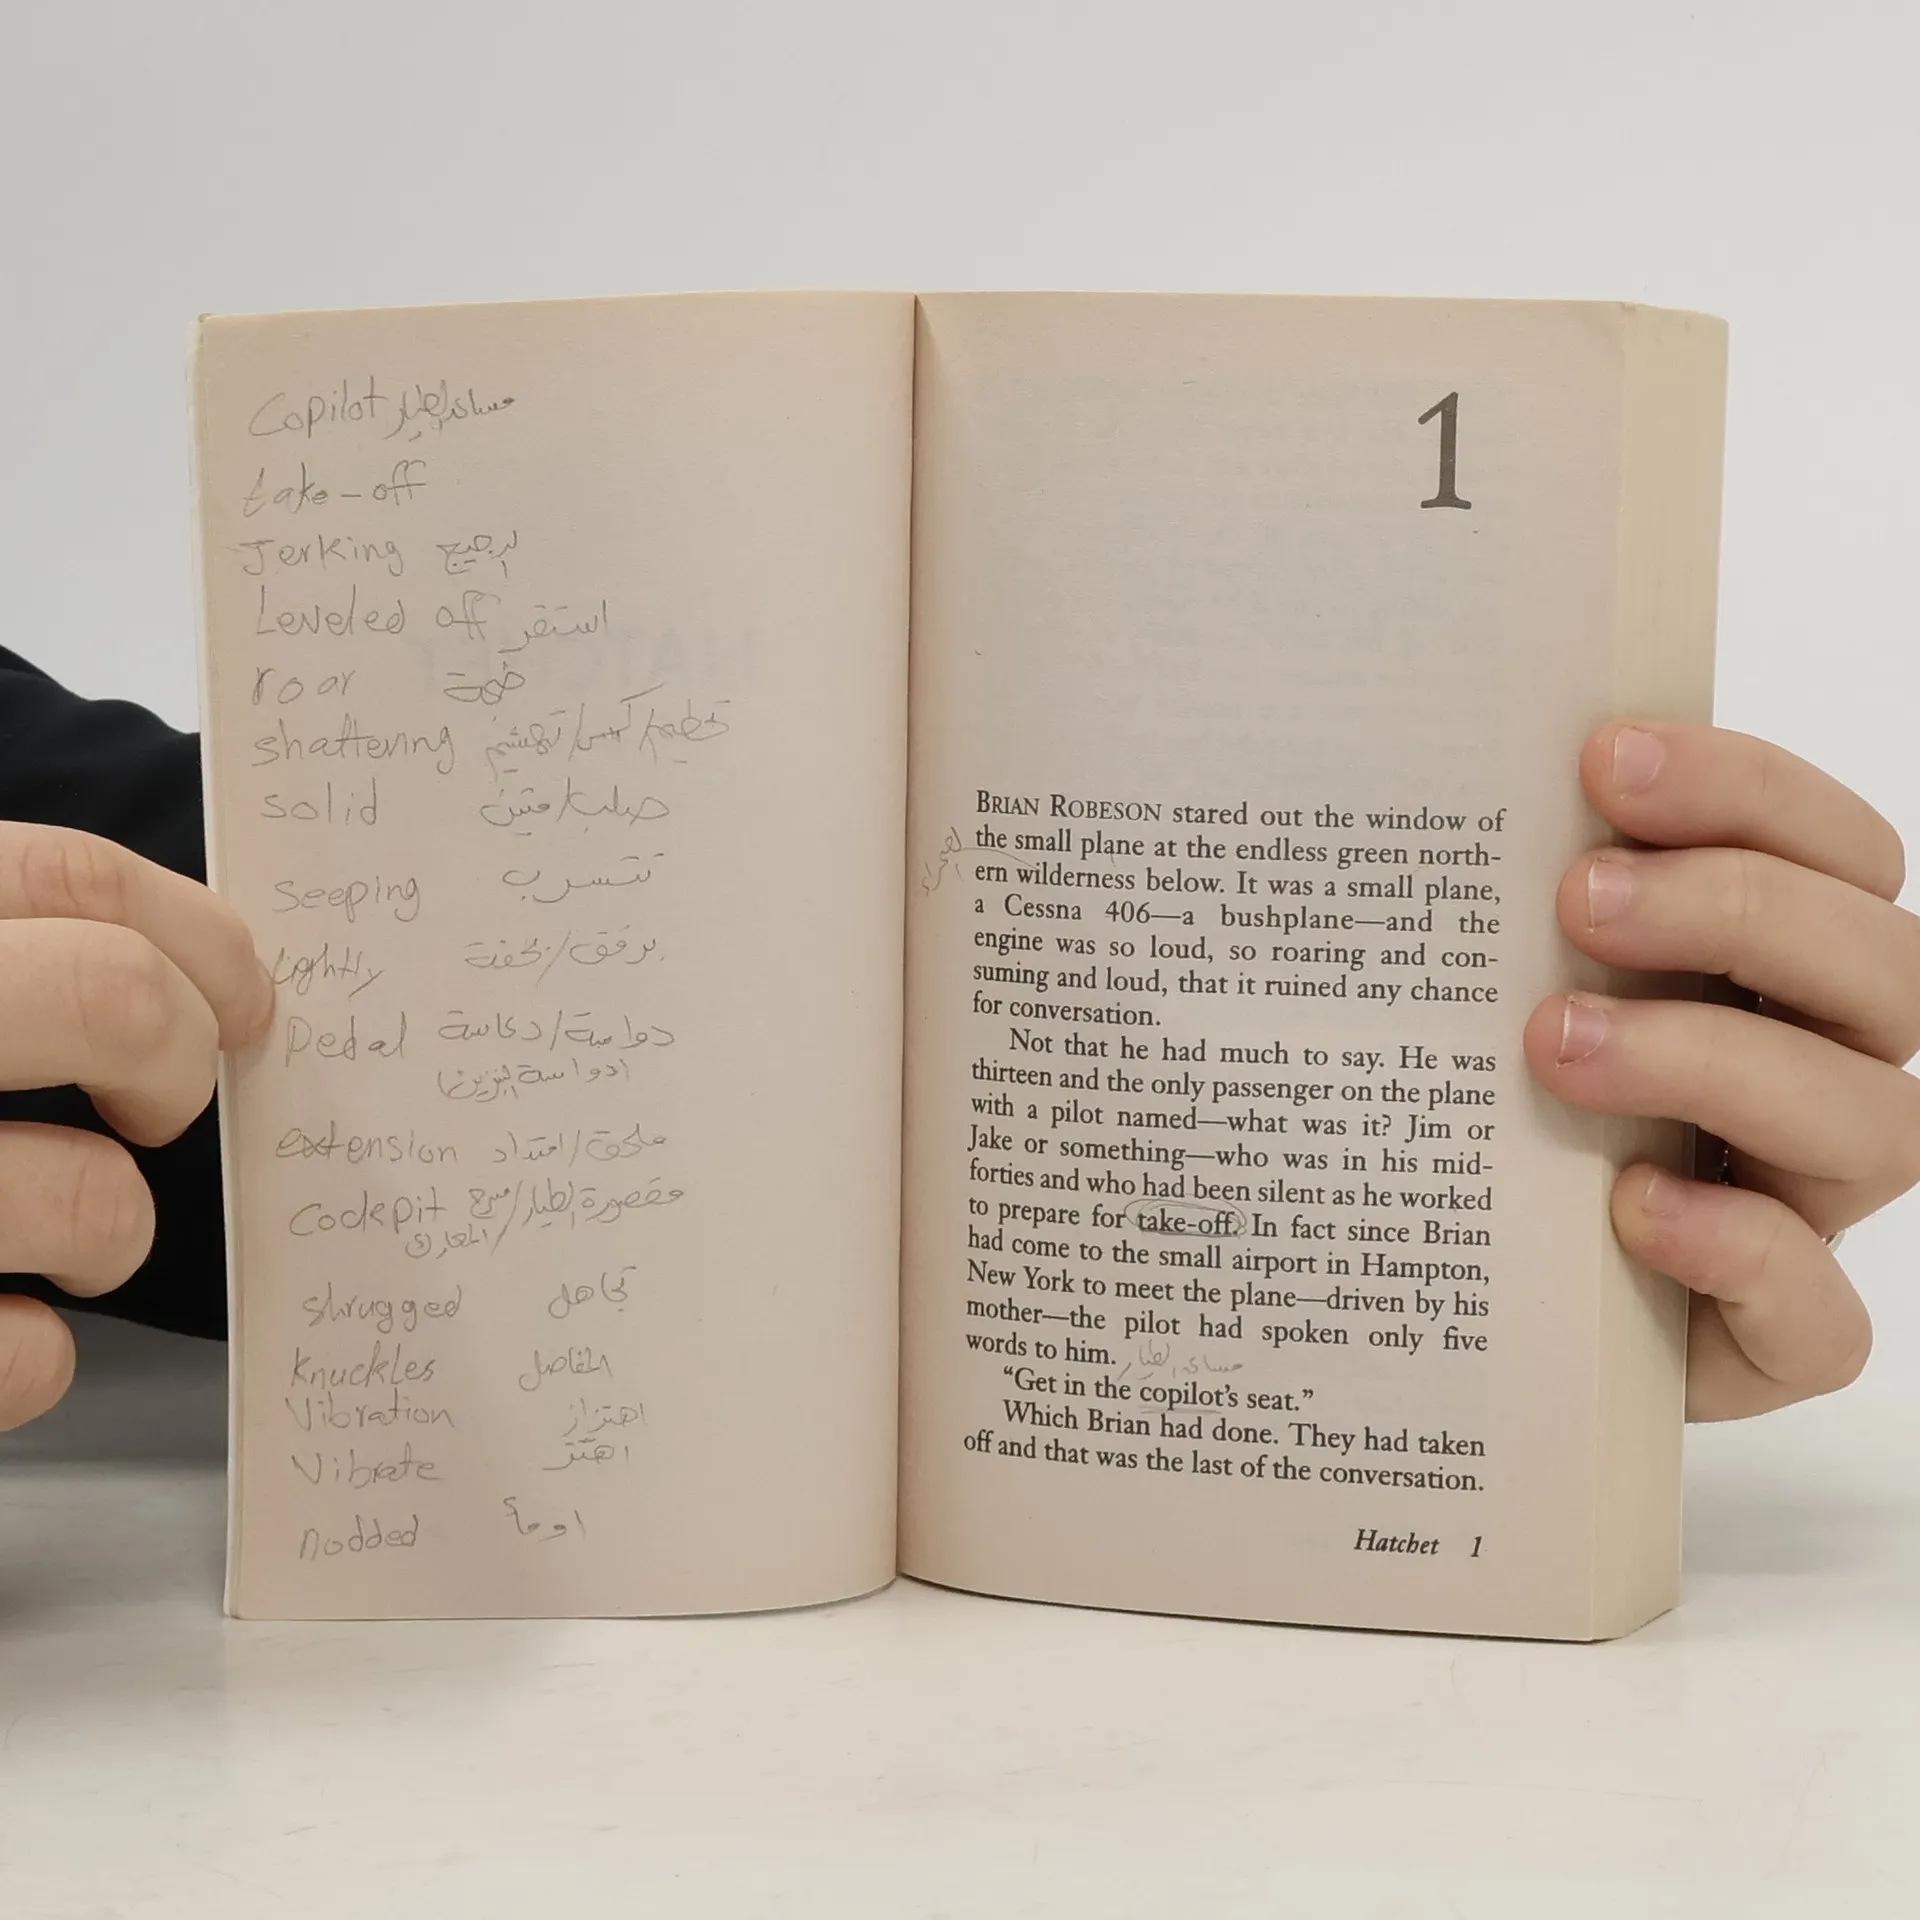 Copilot مساعد الطيار
take-off
Jerking
Leveled off استقر
roar ضجة
shattering تحطيم/كسر/تهشيم
solid صلب/متين
Seeping تتسرب
Lightly برفق/بخفة
Pedal دواسة/دعاسة
(دواسة البنزين)
extension ملحق/امتداد
Cockpit مقصورة الطيار/مسرح
المعارك
shrugged تجاهل
Knuckles المفاصل
Vibration اهتزاز
Vibrate اهتز
nodded اومأ
1
BRIAN ROBESON stared out the window of
the small plane at the endless green north-
ern wilderness below. It was a small plane,
a Cessna 406—a bushplane—and the
engine was so loud, so roaring and con-
suming and loud, that it ruined any chance
for conversation.
Not that he had much to say. He was
thirteen and the only passenger on the plane
with a pilot named—what was it? Jim or
Jake or something—who was in his mid-
forties and who had been silent as he worked
to prepare for take-off. In fact since Brian
had come to the small airport in Hampton,
New York to meet the plane—driven by his
mother—the pilot had spoken only five
words to him. مساعد الطيار
“Get in the copilot’s seat.”
Which Brian had done. They had taken
off and that was the last of the conversation.
Hatchet 1